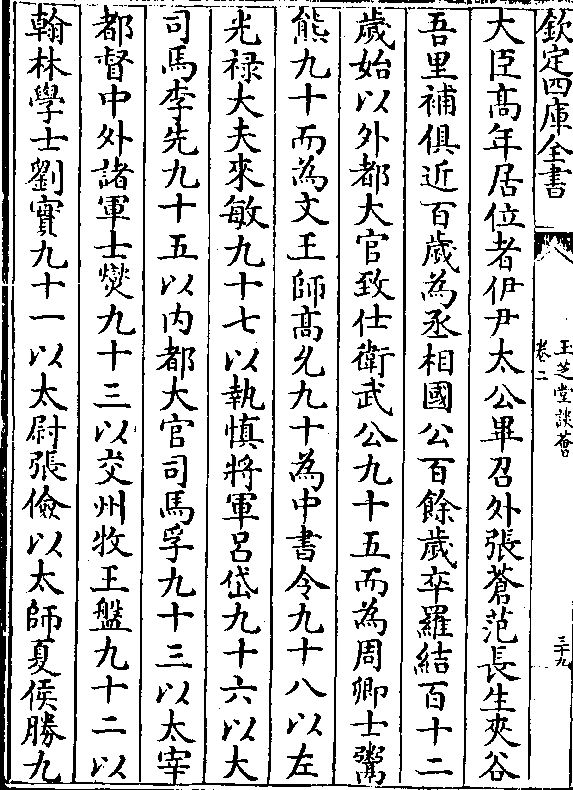 欽定四庫全書
玉芝堂談薈
卷二
三十九
大臣高年居位者伊尹太公畢召外張蒼范長生夾谷
吾里補俱近百歲為丞相國公百餘歲卒羅結百十二
歲始以外都大官致仕衛武公九十五而為周卿士鬻
熊九十而為文王師高允九十為中書令九十八以左
光禄大夫來敏九十七以執慎將軍呂岱九十六以大
司馬李先九十五以内都大官司馬孚九十三以太宰
都督中外諸軍士爕九十三以交州牧王盤九十二以
翰林學士劉實九十一以太尉張儉以太師夏侯勝九